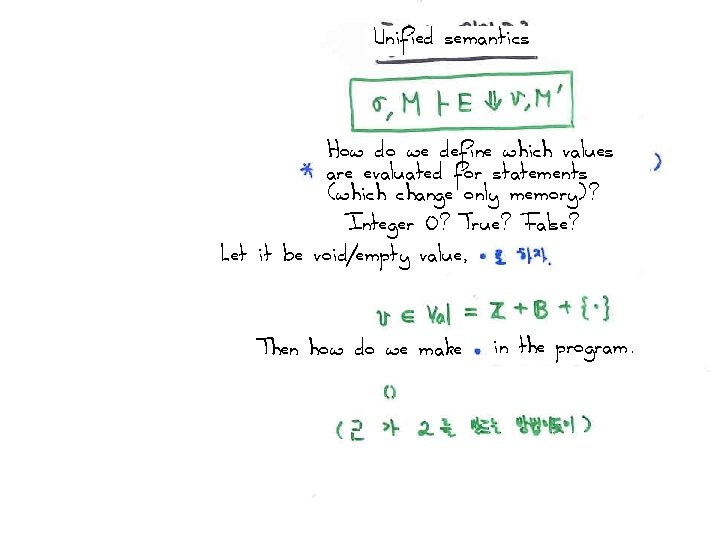 Unified semantics
σ, M ⊢ E ⇓ v, M'
How do we define which values
* are evaluated for statements )
(which change only memory)?
Integer 0? True? False?
Let it be void/empty value, • 로 하자.
v ∈ Val = Z + B + {·}
Then how do we make • in the program.
()
( 2 가 2 를 만드는 방법이듯이 )